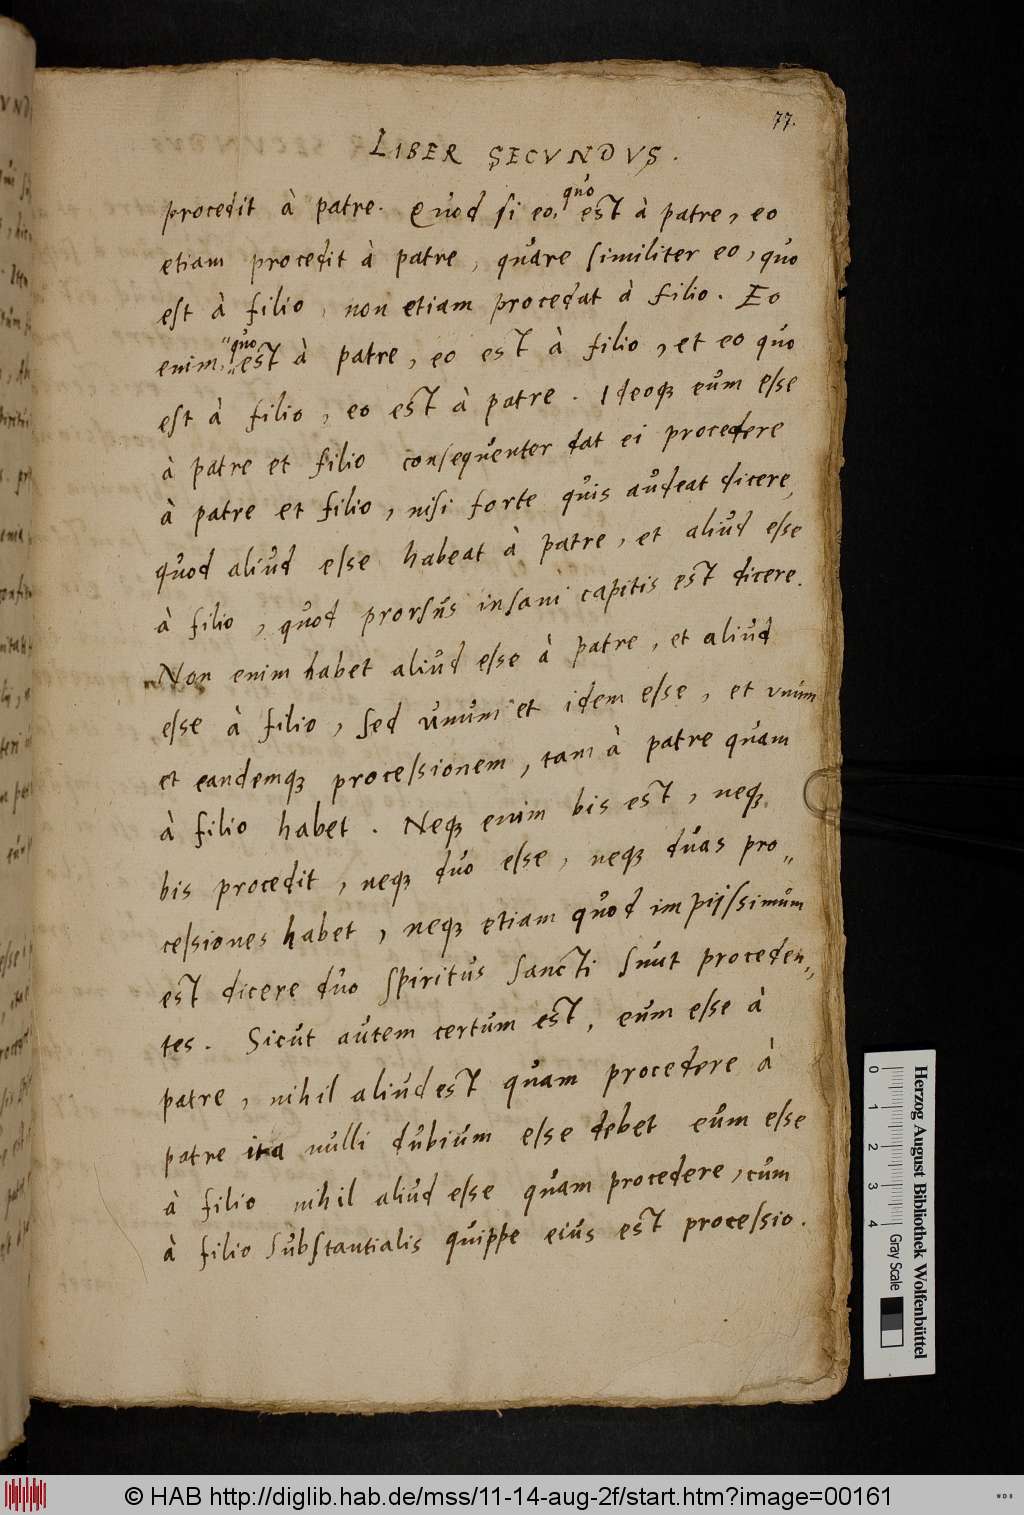 77.
LIBER SECVNDVS.
procedit à patre. Quod si eo, quo est à patre, eo
etiam procedit à patre, quare similiter eo, quo
est à filio, non etiam procedat à filio. Eo
enim, quo est à patre, eo est à filio, et eo quo
est à filio, eo est à patre. Ideoqꝫ eum esse
à patre et filio consequenter dat ei procedere
à patre et filio, nisi forte quis audeat dicere,
quod aliud esse habeat à patre, et aliud esse
à filio, quod prorsus insani capitis est dicere.
Non enim habet aliud esse à patre, et aliud
esse à filio, sed unum et idem esse, et vnum
et eandemqꝫ processionem, tam à patre quam
à filio habet. Neqꝫ enim bis est, neqꝫ
bis procedit, neqꝫ duo esse, neqꝫ duas pro„
cessiones habet, neqꝫ etiam quod impijssimum
est dicere duo spiritus sancti sunt proceden„
tes. Sicut autem certum est, eum esse à
patre, nihil aliud est quam procedere à
patre ita nulli dubium esse debet eum esse
à filio nihil aliud esse quam procedere, cum
à filio substantialis quippe eius est processio.
Herzog August Bibliothek Wolfenbüttel
0 1 2 3 4 Gray Scale
© HAB http://diglib.hab.de/mss/11-14-aug-2f/start.htm?image=00161